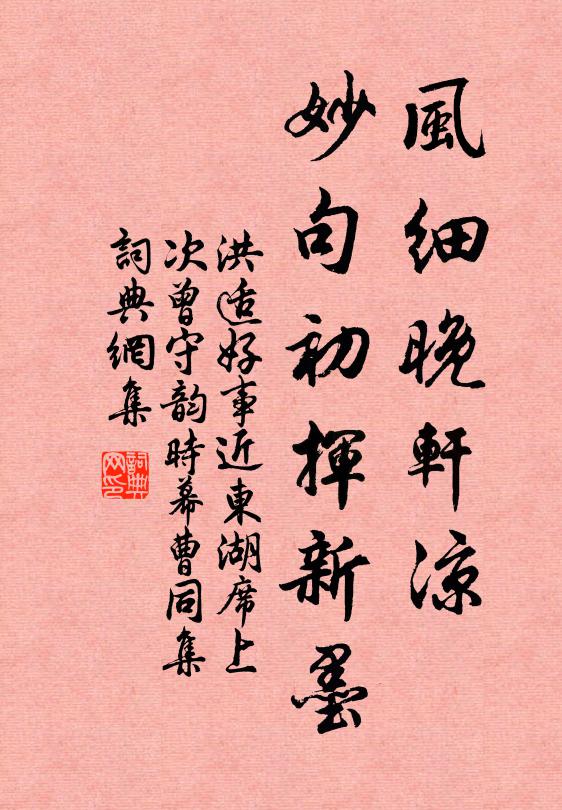 風細晚軒涼
妙句初揮新墨
洪适好事近東湖席上
次曾守韵時幕曹同集
詞典網集
詞典网印